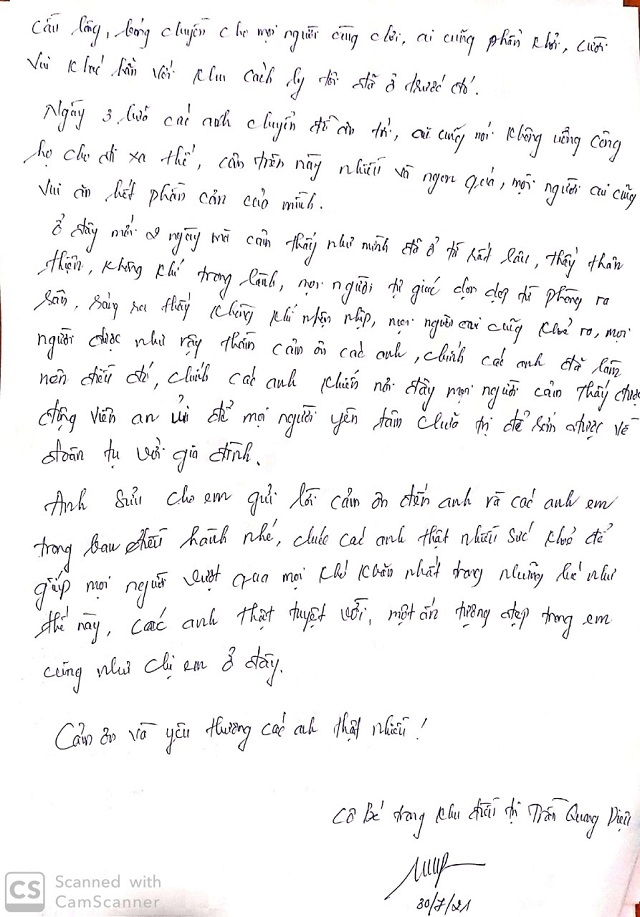 cầu lông, bóng chuyền cho mọi người cùng chơi, ai cũng phấn khởi, cười
vui khác hẳn với khu cách ly tôi đã ở trước đó.
Ngày 3 bữa các anh chuyển đồ ăn tới, ai cũng nói không uổng công
họ cho đi xa thế, cơm trên này nhiều và ngon quá, mọi người ai cũng
vui ăn hết phần cơm của mình.
Ở đây mới 2 ngày mà cảm thấy như mình đã ở từ rất lâu, thấy thân
thiện, không khí trong lành, mọi người tự giác dọn dẹp từ phòng ra
sân, sáng ra thấy không khí nhộn nhịp, mọi người ai cũng khoẻ ra, mọi
người được như vậy thầm cảm ơn các anh, chính các anh đã làm
nên điều đó, chính các anh khiến nơi đây mọi người cảm thấy được
động viên an ủi để mọi người yên tâm chữa trị để sớm được về
đoàn tụ với gia đình.
Anh Sửu cho em gửi lời cảm ơn đến anh và các anh em
trong ban điều hành nhé, chúc các anh thật nhiều sức khoẻ để
giúp mọi người vượt qua mọi khó khăn nhất trong những lúc như
thế này, các anh thật tuyệt vời, một ấn tượng đẹp trong em
cũng như chị em ở đây.
Cảm ơn và yêu thương các anh thật nhiều!
Cô Bé trong khu điều trị Trần Quang Diệu
30/7/021
CS Scanned with
CamScanner